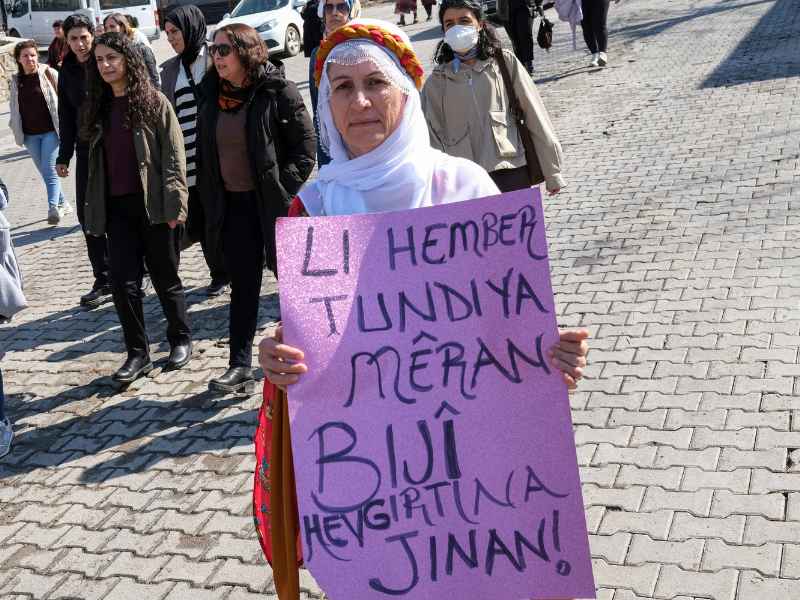 LI HEMBER
TUNDIYA
MÊRAN
BIJÎ
HEVGIRTINA
JINAN!